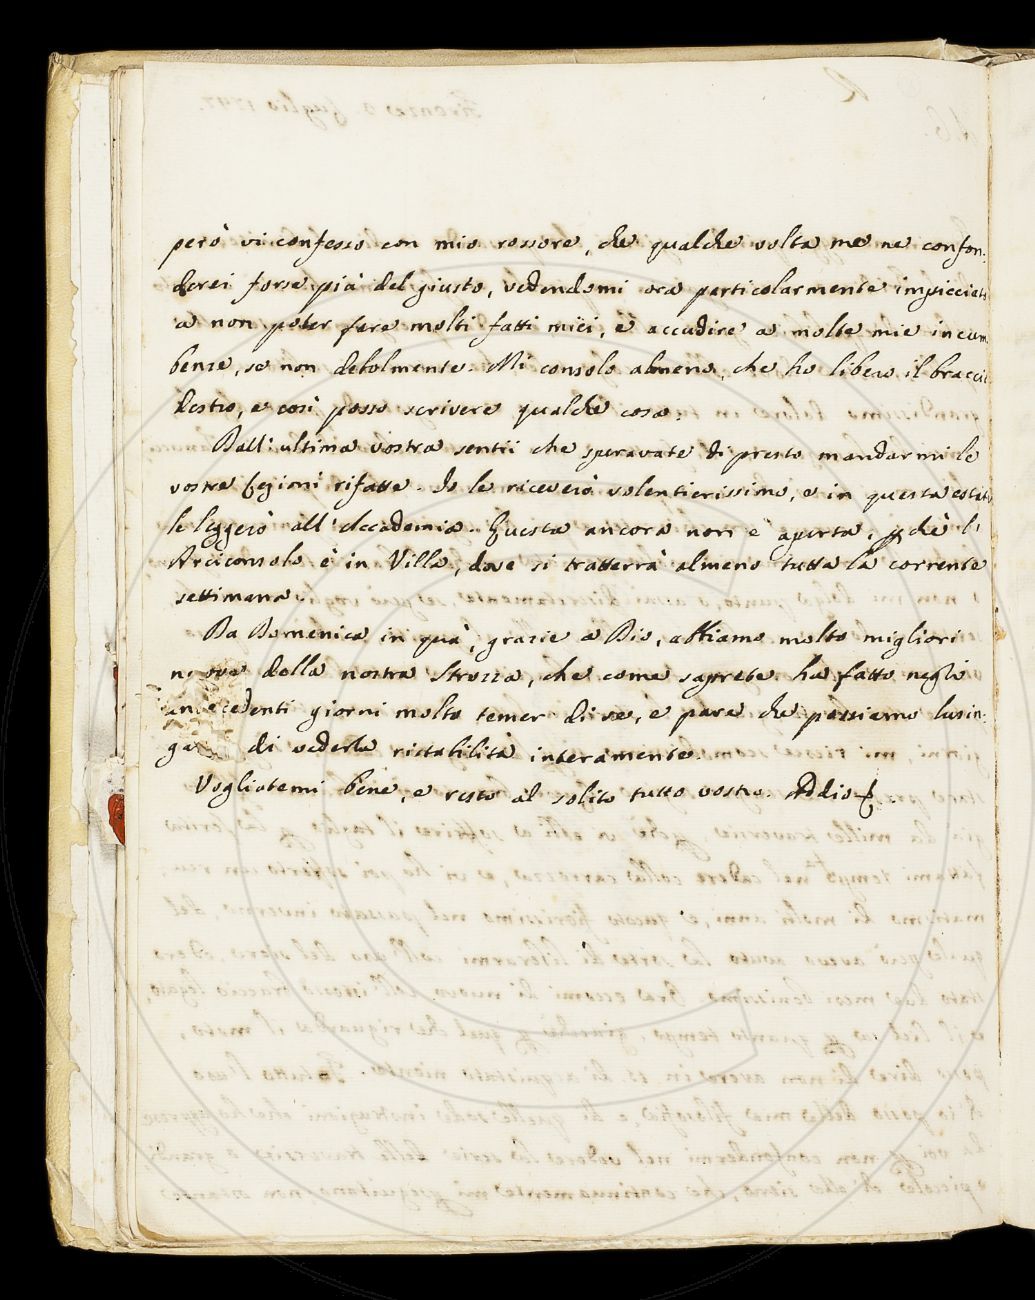 però vi confesso con mio rossore, che qualche volta me ne confon=
derei forse più del giusto, vedendomi ora particolarmente impicciato
a non poter fare molti fatti miei, e accudire a molte mie incum
benze, se non debolmente. Mi consolo almeno, che ho libero il braccio
destro, e così posso scrivere qualche cosa.
Dall'ultima vostra sentii che speravate di presto mandarmi le
vostre Lezioni rifatte. Io le riceverò volentierissimo, e in questa estate
le leggerò all'Accademia. Questa ancora non è aperta, pchè l'
Arciconsolo è in Villa, dove si tratterrà almeno tutta la corrente
settimana.
Da Domenica in quà, grazie a Dio, abbiamo molto migliori
nuove della nostra Strozza, che come saprete ha fatto negli
antecedenti giorni molto temer di se, e pare che possiamo lusin=
ga di vederla ristabilità interamente.
Vogliatemi bene, e resto al solito tutto vostro. Addio